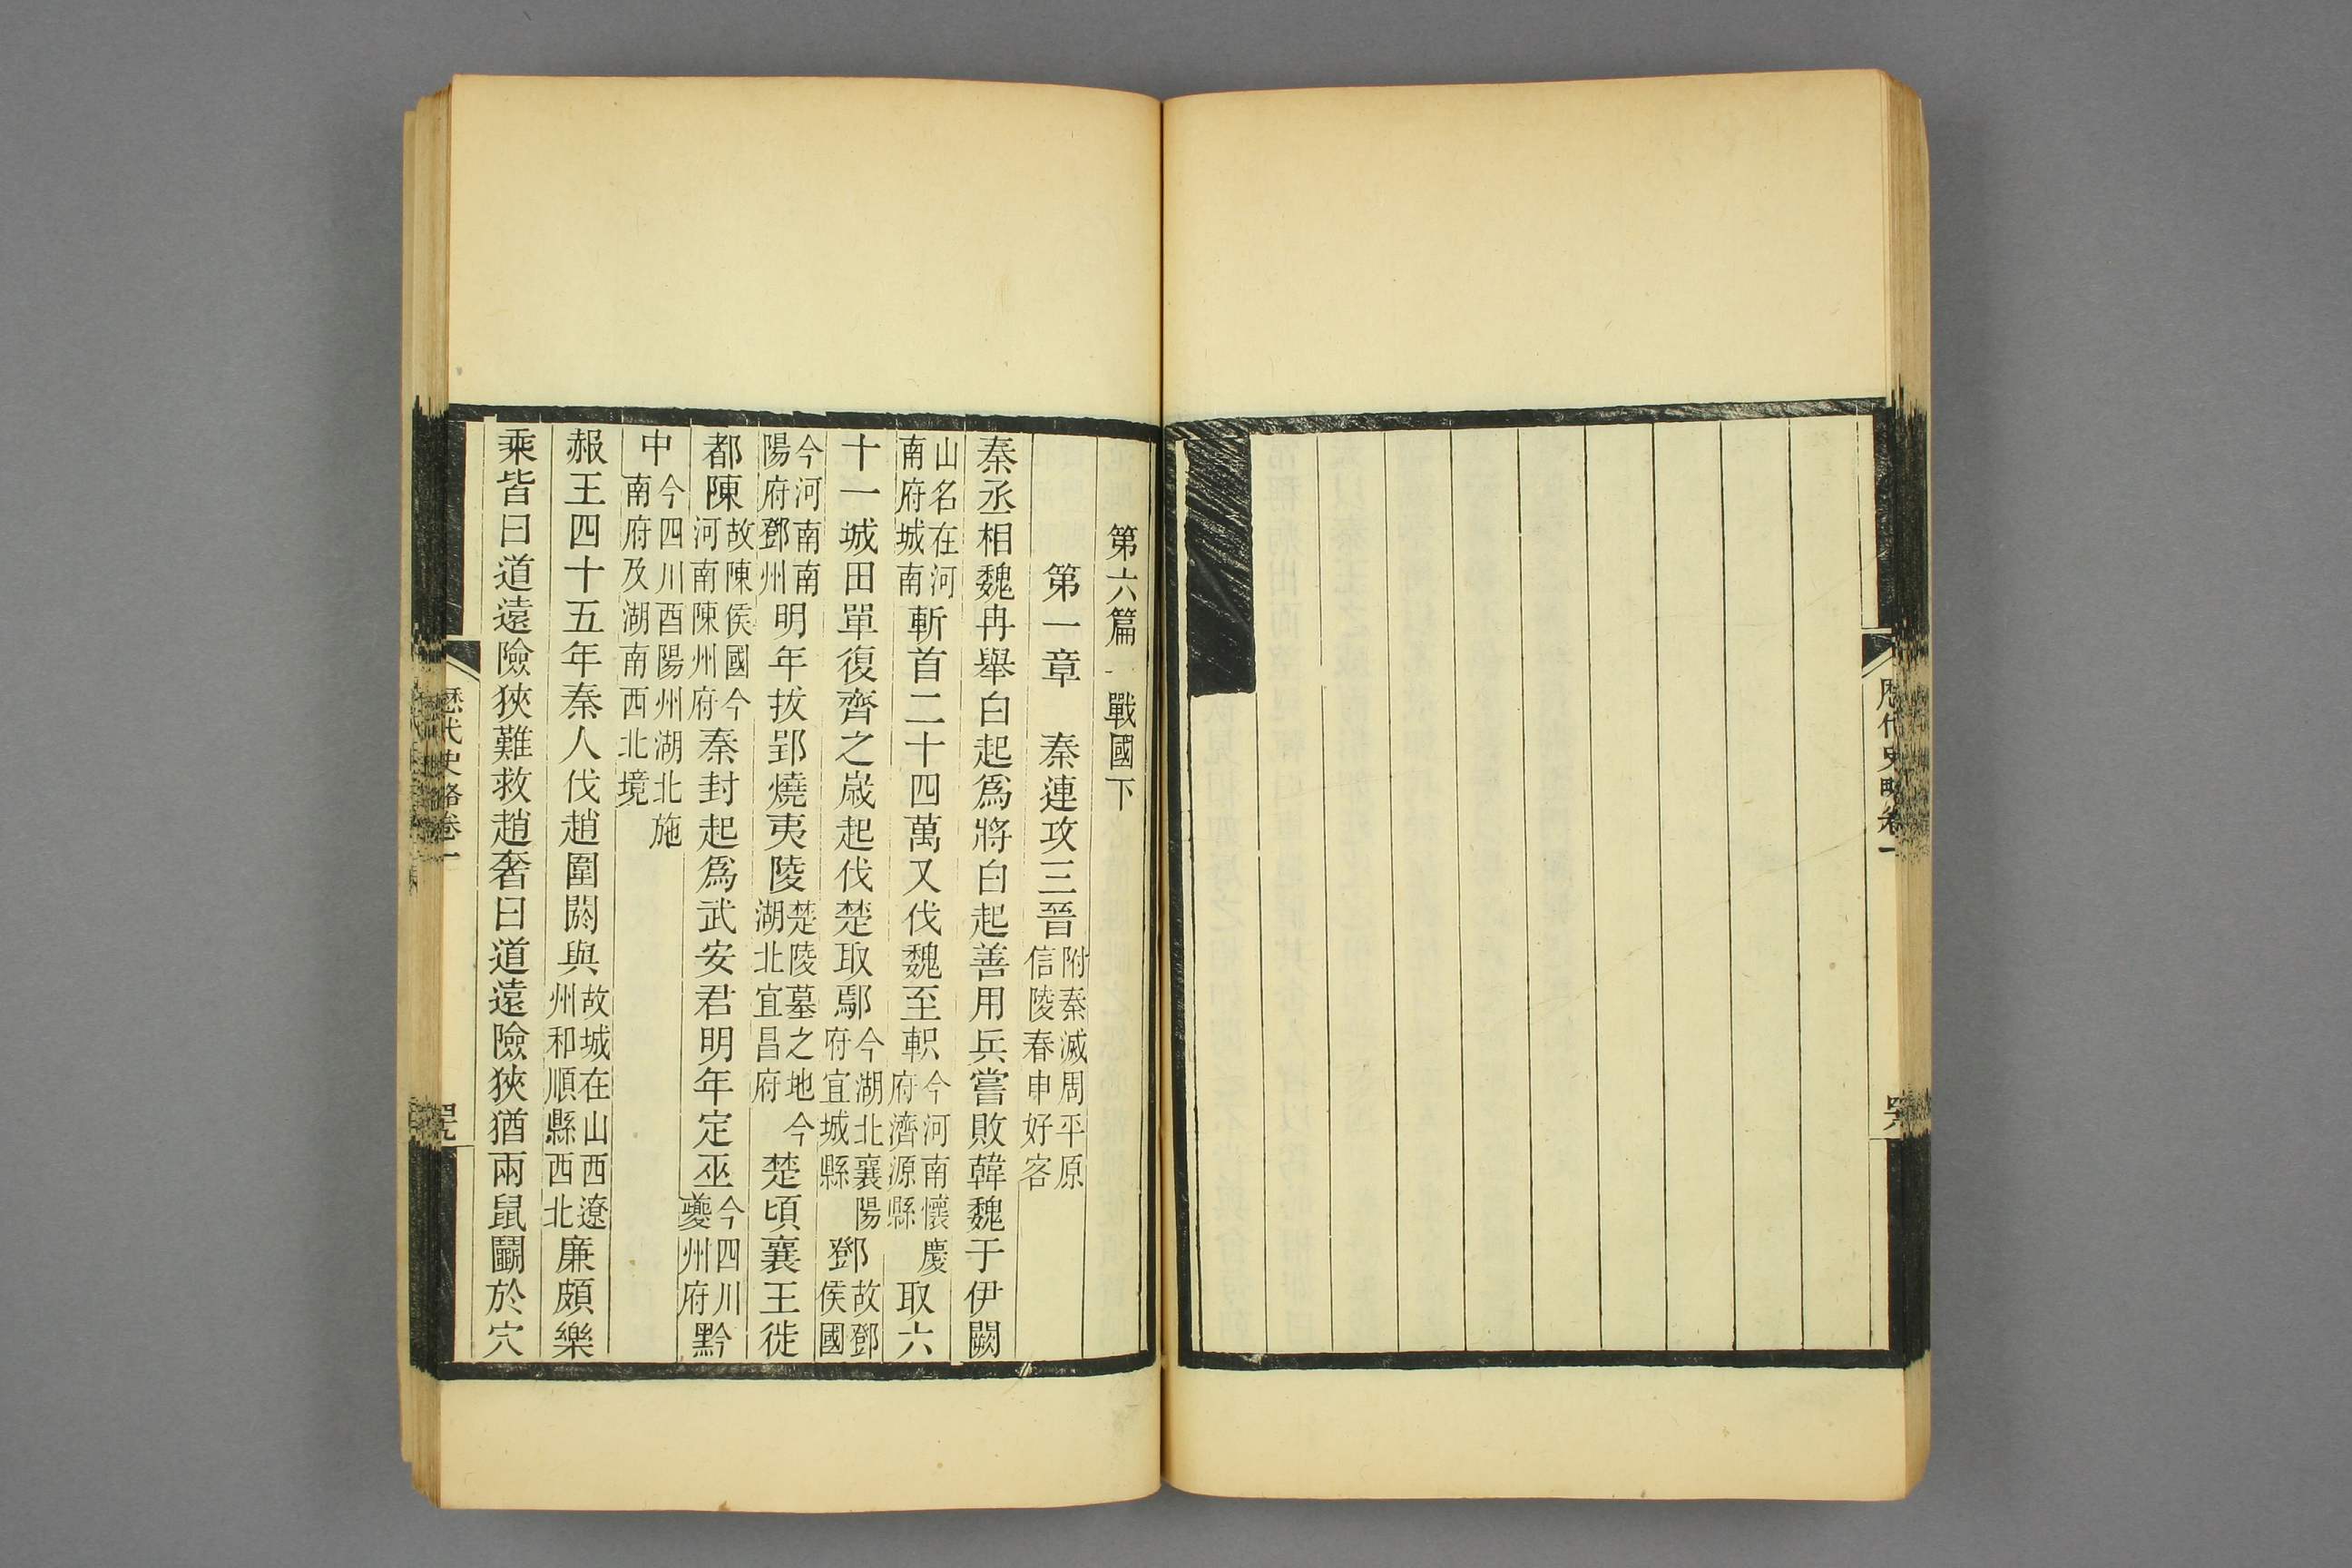 歷代史略卷一
第六篇 戰國下
第一章 秦連攻三晉附秦滅周平原信陵春申好客
秦丞相魏冉舉白起爲將白起善用兵嘗敗韓魏于伊闕
山名在河南府城南斬首二十四萬又伐魏至軹今河南懷慶府濟源縣取六
十一城田單復齊之歲起伐楚取鄢今湖北襄陽府宜城縣鄧故鄧侯國
今河南南陽府鄧州明年拔郢燒夷陵楚陵墓之地今湖北宜昌府楚頃襄王徙
都陳故陳侯國今河南陳州府秦封起爲武安君明年定巫今四川夔州府黔
中今四川酉陽州湖北施南府及湖南西北境
赧王四十五年秦人伐趙圍閼與故城在山西遼州和順縣西北廉頗樂
乘皆曰道遠險狹難救趙奢曰道遠險狹猶兩鼠鬭於穴
歷代史略卷一